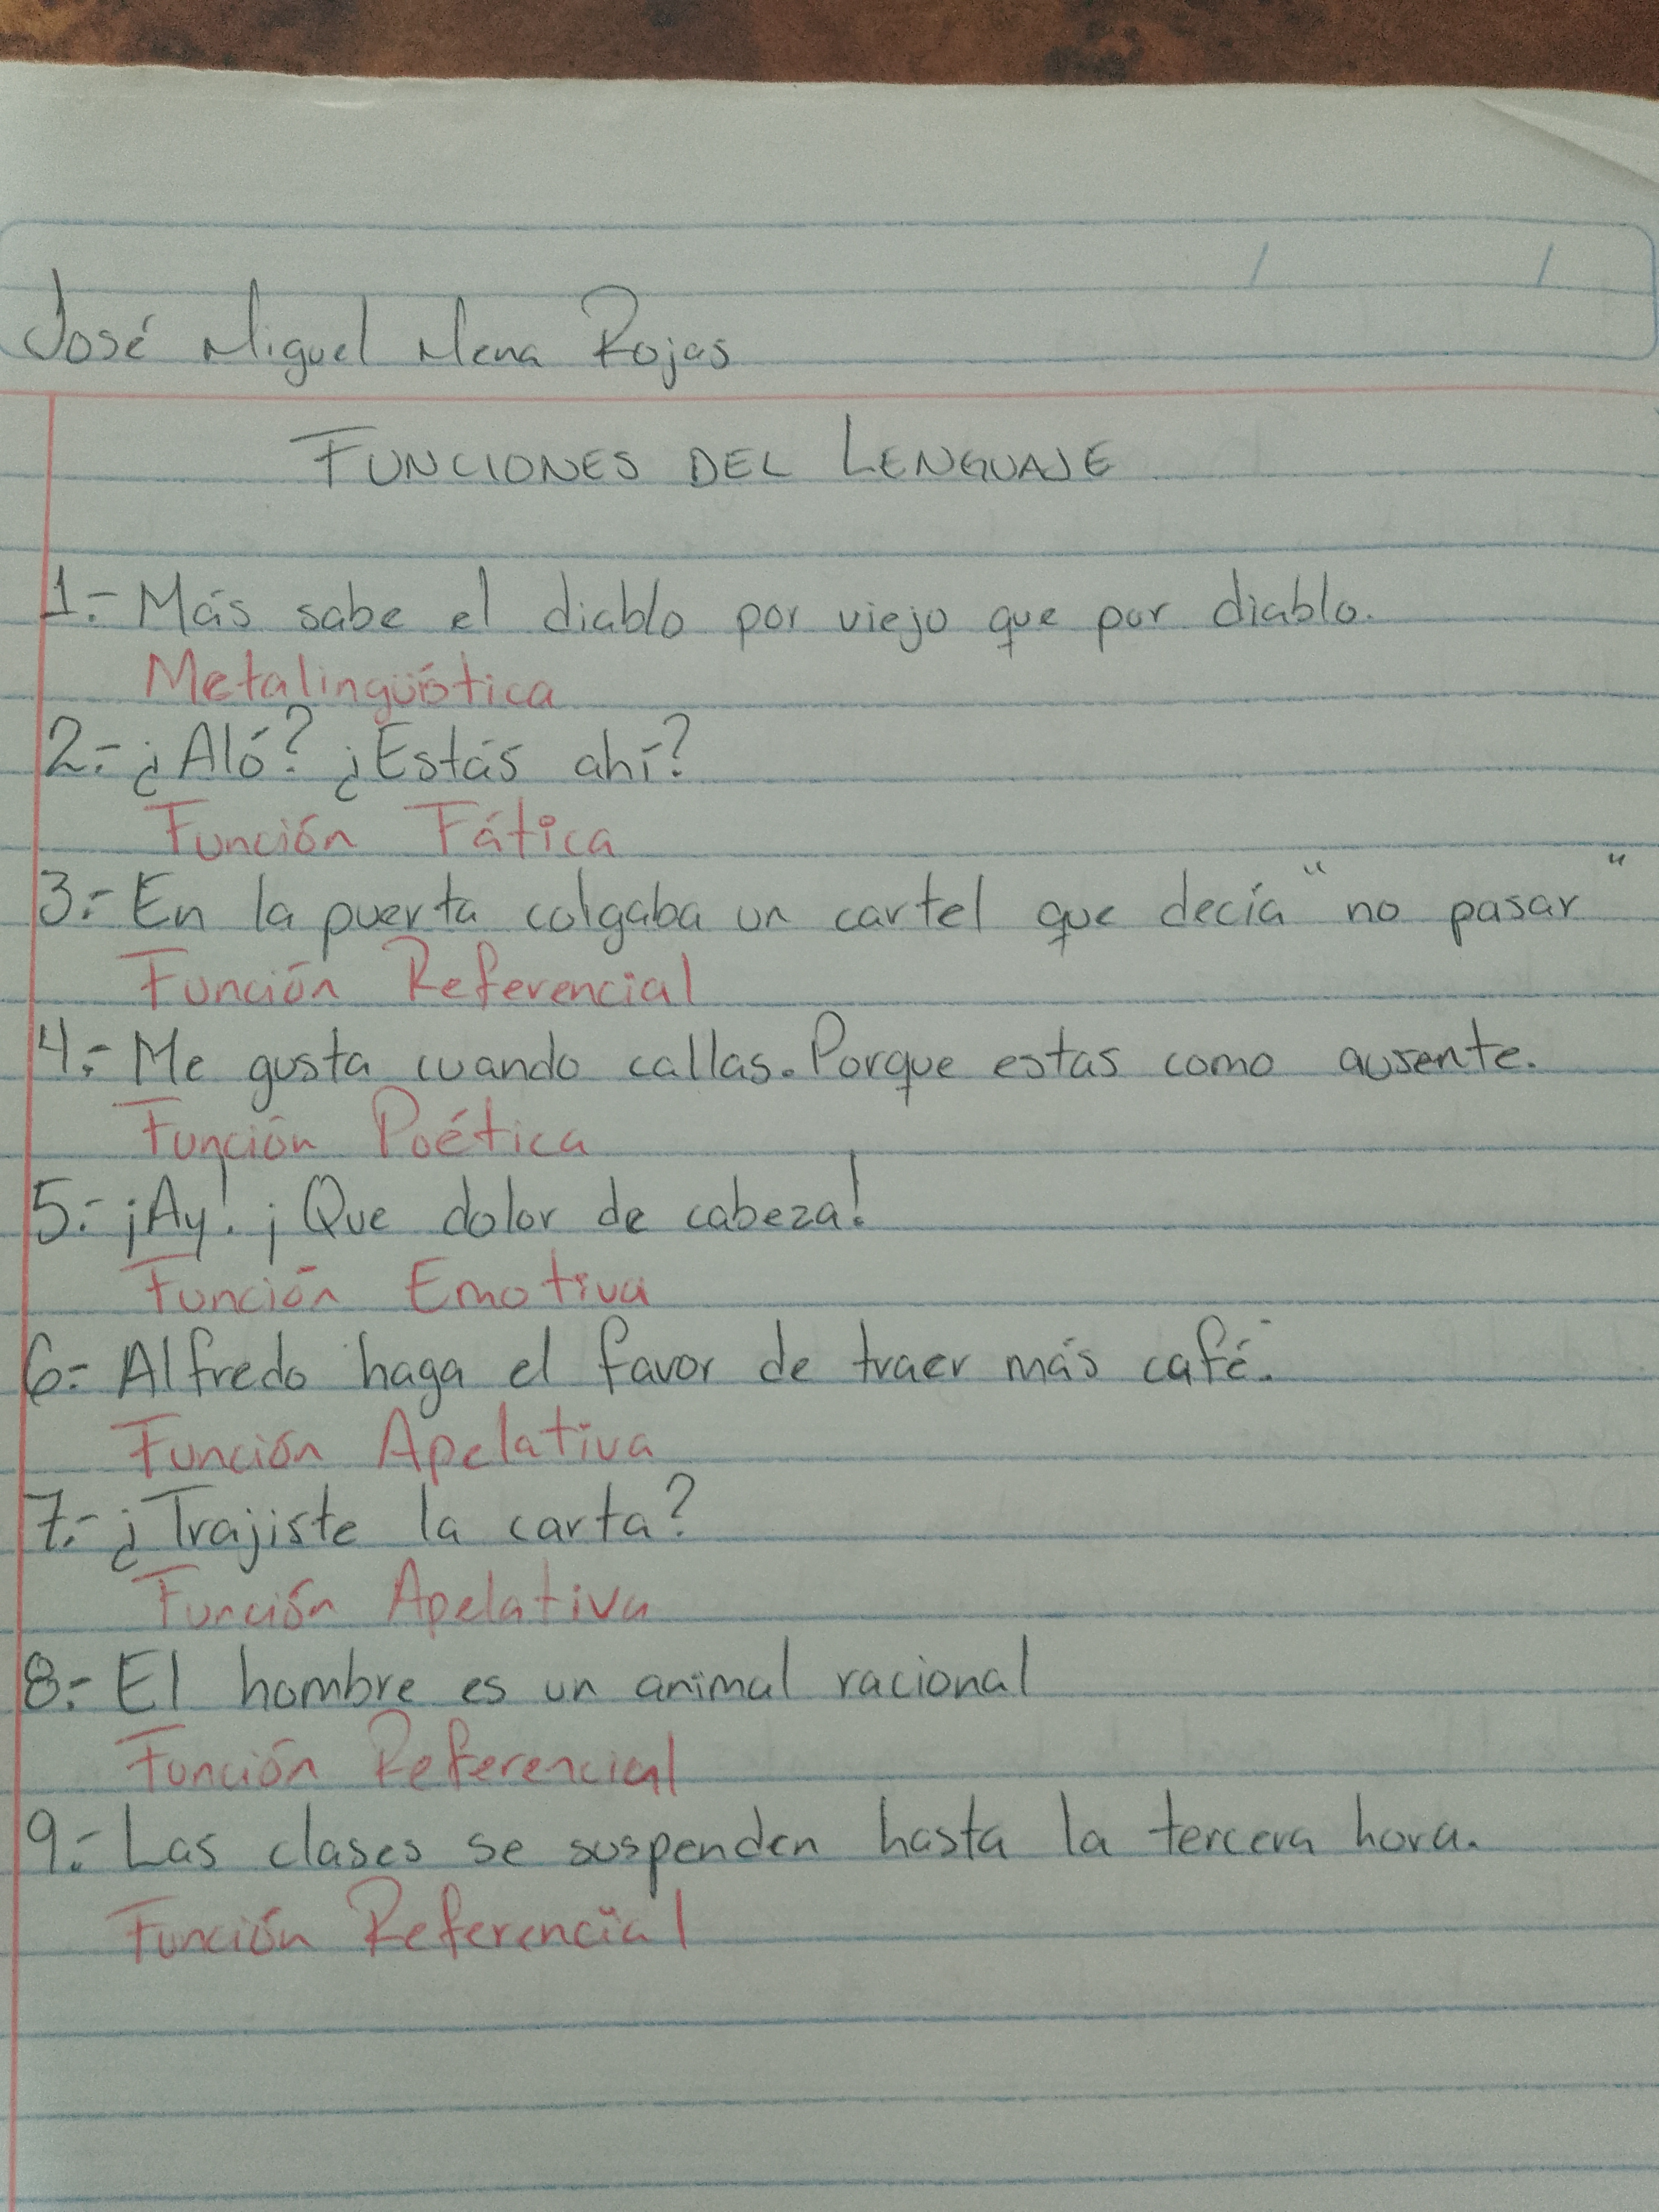 José Miguel Mena Rojas
FUNCIONES DEL LENGUAJE
1.- Más sabe el diablo por viejo que por diablo.
Metalingüística
2.- ¿Aló? ¿Estás ahí?
Función Fática
3.- En la puerta colgaba un cartel que decía "no pasar"
Función Referencial
4.- Me gusta cuando callas. Porque estas como ausente.
Función Poética
5.- ¡Ay! ¡Que dolor de cabeza!
Función Emotiva
6.- Alfredo haga el favor de traer más café.
Función Apelativa
7.- ¿Trajiste la carta?
Función Apelativa
8.- El hombre es un animal racional
Función Referencial
9.- Las clases se suspenden hasta la tercera hora.
Función Referencial